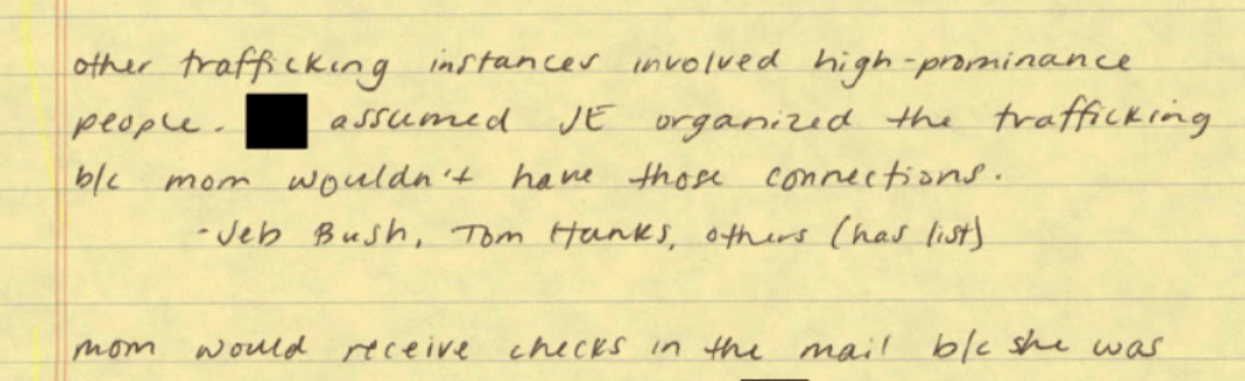 other trafficking instances involved high-prominance
people. assumed JE organized the trafficking
b/c mom wouldn't have those connections.
-Jeb Bush, Tom Hanks, others (has list)
mom would receive checks in the mail b/c she was